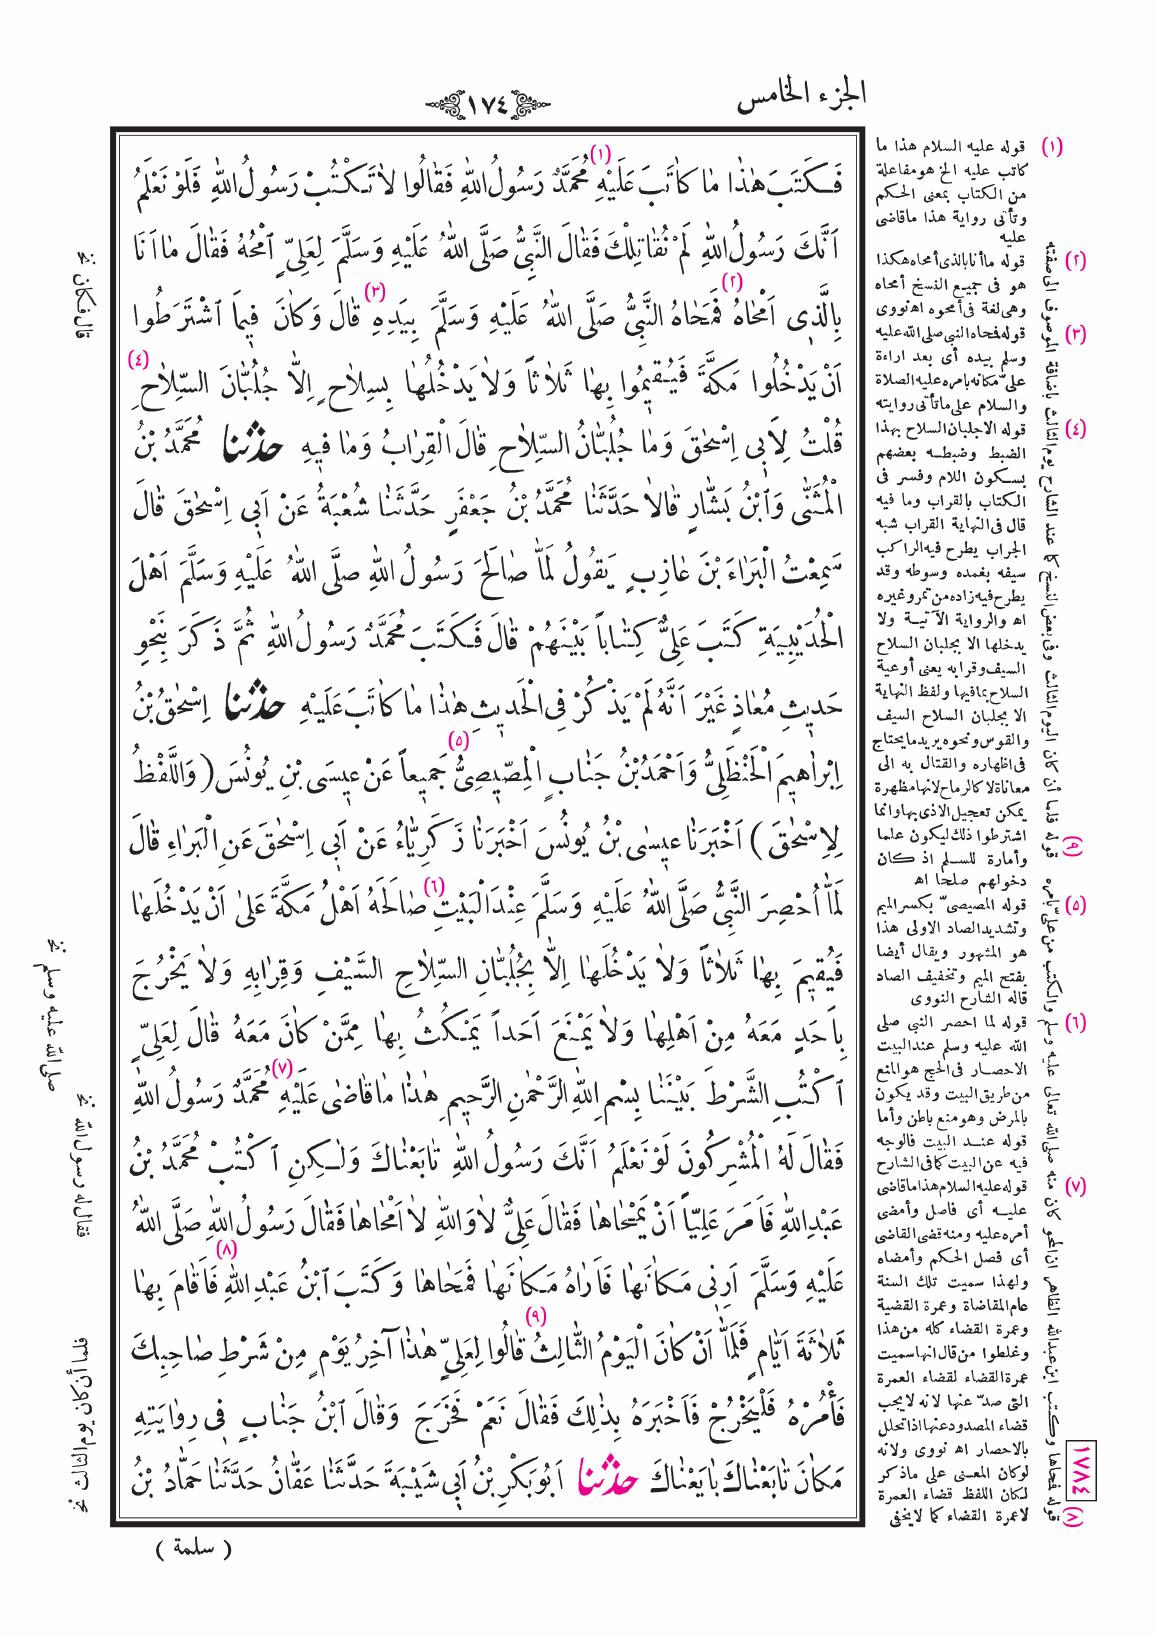 الجزء الخامس
١٧٤
فَكَتَبَ هٰذَا مَا كَاتَبَ عَلَيْهِ (١) مُحَمَّدٌ رَسُولُ اللهِ فَقَالُوا لَا تَكْتُبْ رَسُولُ اللهِ فَلَوْ نَعْلَمُ
أَنَّكَ رَسُولُ اللهِ لَمْ نُقَاتِلْكَ فَقَالَ النَّبِيُّ صَلَّى اللهُ عَلَيْهِ وَسَلَّمَ لِعَلِيٍّ ٱمْحُهُ فَقَالَ مَا أَنَا
بِالَّذِي أَمْحَاهُ (٢) فَمَحَاهُ النَّبِيُّ صَلَّى اللهُ عَلَيْهِ وَسَلَّمَ بِيَدِهِ (٣) قَالَ وَكَانَ فِيمَا ٱشْتَرَطُوا
أَنْ يَدْخُلُوا مَكَّةَ فَيُقِيمُوا بِهَا ثَلَاثاً وَلَا يَدْخُلُهَا بِسِلَاحٍ إِلَّا جُلُبَّانَ السِّلَاحِ (٤)
قُلْتُ لِأَبِي إِسْحٰقَ وَمَا جُلُبَّانُ السِّلَاحِ قَالَ الْقِرَابُ وَمَا فِيهِ حدثنا مُحَمَّدُ بْنُ
الْمُثَنَّى وَٱبْنُ بَشَّارٍ قَالَا حَدَّثَنَا مُحَمَّدُ بْنُ جَعْفَرٍ حَدَّثَنَا شُعْبَةُ عَنْ أَبِي إِسْحٰقَ قَالَ
سَمِعْتُ الْبَرَاءَ بْنَ عَازِبٍ يَقُولُ لَمَّا صَالَحَ رَسُولُ اللهِ صَلَّى اللهُ عَلَيْهِ وَسَلَّمَ أَهْلَ
الْحُدَيْبِيَةِ كَتَبَ عَلِيٌّ كِتَاباً بَيْنَهُمْ قَالَ فَكَتَبَ مُحَمَّدٌ رَسُولُ اللهِ ثُمَّ ذَكَرَ بِنَحْوِ
حَدِيثِ مُعَاذٍ غَيْرَ أَنَّهُ لَمْ يَذْكُرْ فِي الْحَدِيثِ هٰذَا مَا كَاتَبَ عَلَيْهِ حدثنا إِسْحٰقُ بْنُ
إِبْرَاهِيمَ الْحَنْظَلِيُّ وَأَحْمَدُ بْنُ جَنَابٍ الْمِصِّيصِيُّ (٥) جَمِيعاً عَنْ عِيسَى بْنِ يُونُسَ (وَاللَّفْظُ
لِإِسْحٰقَ) أَخْبَرَنَا عِيسَى بْنُ يُونُسَ أَخْبَرَنَا زَكَرِيَّاءُ عَنْ أَبِي إِسْحٰقَ عَنِ الْبَرَاءِ قَالَ
لَمَّا أُحْصِرَ النَّبِيُّ صَلَّى اللهُ عَلَيْهِ وَسَلَّمَ عِنْدَ الْبَيْتِ (٦) صَالَحَهُ أَهْلُ مَكَّةَ عَلَى أَنْ يَدْخُلَهَا
فَيُقِيمَ بِهَا ثَلَاثاً وَلَا يَدْخُلَهَا إِلَّا بِجُلُبَّانِ السِّلَاحِ السَّيْفِ وَقِرَابِهِ وَلَا يَخْرُجَ
بِأَحَدٍ مَعَهُ مِنْ أَهْلِهَا وَلَا يَمْنَعَ أَحَداً يَمْكُثُ بِهَا مِمَّنْ كَانَ مَعَهُ قَالَ لِعَلِيٍّ
ٱكْتُبِ الشَّرْطَ بَيْنَنَا بِسْمِ اللهِ الرَّحْمٰنِ الرَّحِيمِ هٰذَا مَا قَاضَى عَلَيْهِ (٧) مُحَمَّدٌ رَسُولُ اللهِ
فَقَالَ لَهُ الْمُشْرِكُونَ لَوْ نَعْلَمُ أَنَّكَ رَسُولُ اللهِ تَابَعْنَاكَ وَلٰكِنِ ٱكْتُبْ مُحَمَّدُ بْنُ
عَبْدِ اللهِ فَأَمَرَ عَلِيّاً أَنْ يَمْحَاهَا فَقَالَ عَلِيٌّ لَا وَاللهِ لَا أَمْحَاهَا فَقَالَ رَسُولُ اللهِ صَلَّى اللهُ
عَلَيْهِ وَسَلَّمَ أَرِنِي مَكَانَهَا فَأَرَاهُ مَكَانَهَا فَمَحَاهَا وَكَتَبَ ٱبْنُ عَبْدِ اللهِ (٨) فَأَقَامَ بِهَا
ثَلَاثَةَ أَيَّامٍ فَلَمَّا أَنْ كَانَ الْيَوْمُ الثَّالِثُ (٩) قَالُوا لِعَلِيٍّ هٰذَا آخِرُ يَوْمٍ مِنْ شَرْطِ صَاحِبِكَ
فَأْمُرْهُ فَلْيَخْرُجْ فَأَخْبَرَهُ بِذٰلِكَ فَقَالَ نَعَمْ فَخَرَجَ وَقَالَ ٱبْنُ جَنَابٍ فِي رِوَايَتِهِ
مَكَانَ تَابَعْنَاكَ بَايَعْنَاكَ حدثنا أَبُو بَكْرِ بْنُ أَبِي شَيْبَةَ حَدَّثَنَا عَفَّانُ حَدَّثَنَا حَمَّادُ بْنُ
( سلمة )
(١) قوله عليه السلام هذا ما
كاتب عليه الخ هو مفاعلة
من الكتاب بمعنى الحكم
وتأتى رواية هذا ماقاضى
عليه
(٢) قوله ماأنا بالذى أمحاه هكذا
هو فى جميع النسخ أمحاه
وهى لغة فى أمحوه اه نووى
(٣) قوله فمحاه النبى صلى الله عليه
وسلم بيده أى بعد اراءة
علىّ مكانه بامره عليه الصلاة
والسلام على ماتأتى روايته
(٤) قوله الاجلبان السلاح بهذا
الضبط وضبطه بعضهم
بسكون اللام وفسر فى
الكتاب بالقراب وما فيه
قال فى النهاية القراب شبه
الجراب يطرح فيه الراكب
سيفه بغمده وسوطه وقد
يطرح فيه زاده من تمر وغيره
اه والرواية الآتية ولا
يدخلها الا بجلبان السلاح
السيف وقرابه يعنى أوعية
السلاح بما فيها ولفظ النهاية
الا بجلبان السلاح السيف
والقوس ونحوه يريد ما يحتاج
فى اظهاره والقتال به الى
معاناة لا كالرماح لانها مظهرة
يمكن تعجيل الاذى بها وانما
اشترطوا ذلك ليكون علما
وأمارة للسلم اذ كان
دخولهم صلحا اه
(٥) قوله المصيصىّ بكسر الميم
وتشديد الصاد الاولى هذا
هو المشهور ويقال أيضا
بفتح الميم وتخفيف الصاد
قاله الشارح النووى
(٦) قوله لما احصر النبى صلى
الله عليه وسلم عند البيت
الاحصار فى الحج هو المنع
من طريق البيت وقد يكون
بالمرض وهو منع باطن وأما
قوله عند البيت فالوجه
فيه عن البيت كما فى الشارح
(٧) قوله عليه السلام هذا ماقاضى
عليه أى فاصل وأمضى
أمره عليه ومنه قضى القاضى
أى فصل الحكم وأمضاه
ولهذا سميت تلك السنة
عام المقاضاة وعمرة القضية
وعمرة القضاء كله من هذا
وغلطوا من قال انها سميت
عمرة القضاء لقضاء العمرة
التى صدّ عنها لانه لايجب
قضاء المصدود عنها اذا تحلل
بالاحصار اه نووى ولانه
لوكان المعنى على ماذكر
لكان اللفظ قضاء العمرة
لاعمرة القضاء كما لايخفى
(٨) قوله فمحاها وكتب ابن عبدالله الظاهر ان المحو كان منه صلى الله تعالى عليه وسلم والكتب من علىّ بأمره
(٩) قوله فلما أن كان اليوم الثالث وفى بعض النسخ كما عند الشارح يوم الثالث باضافة الموصوف الى صفته
١٧٨٤
قال فكان نخ
صلى الله عليه وسلم نخ
فقال له رسول الله نخ
فلما أن كان يوم الثالث نخ